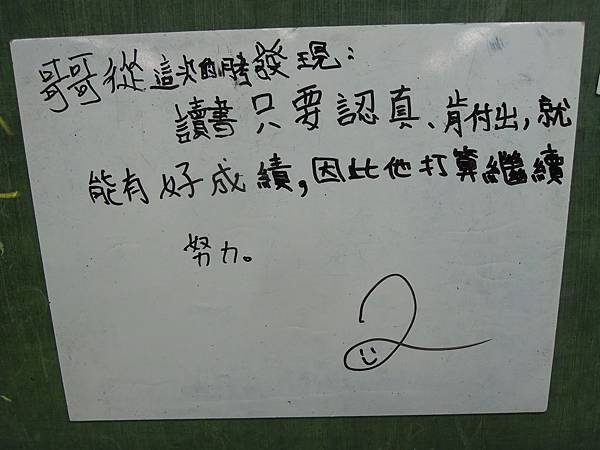 哥哥從這次的月考發現：
讀書只要認真、肯付出，就
能有好成績，因此他打算繼續
努力。
2